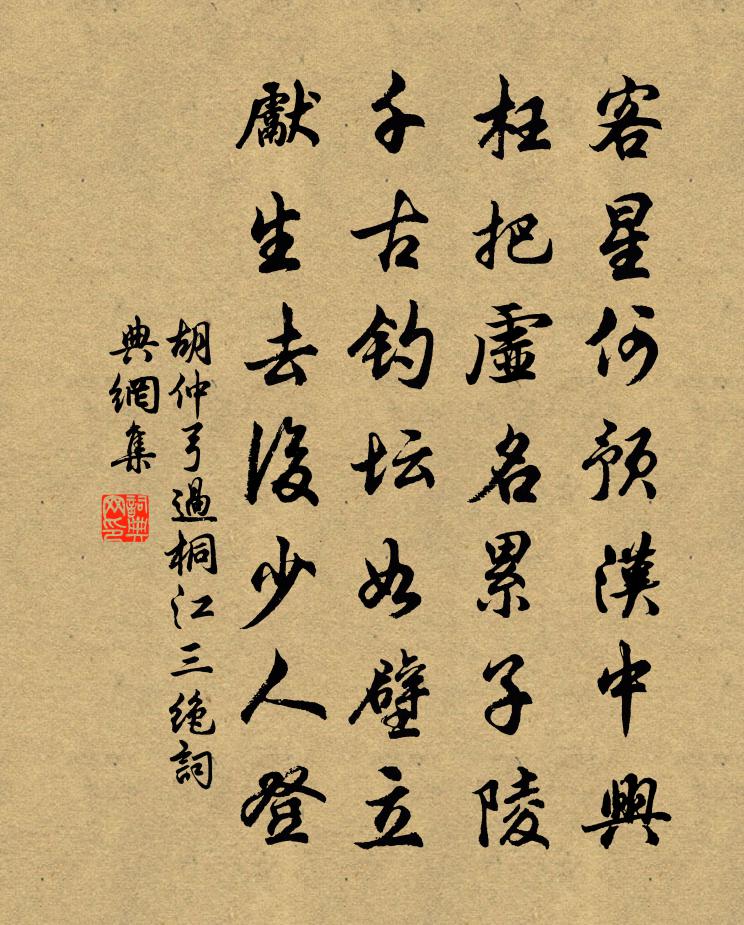 客星何预漢中興
枉把虛名累子陵
千古钓坛如壁立
獻生去後少人登
胡仲弓過桐江三絶詞
典網集
詞典
网印